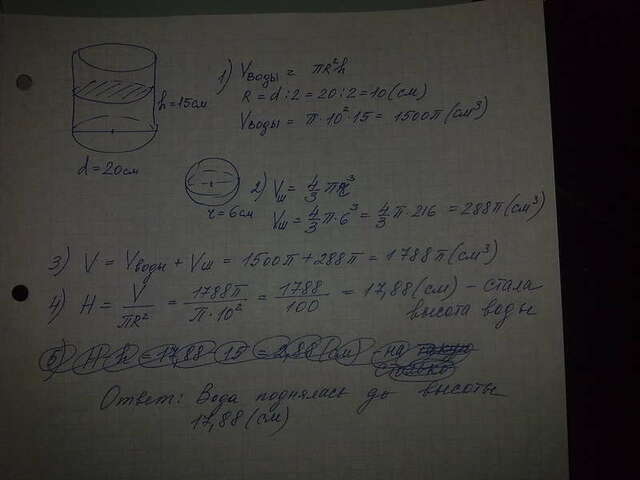 h=15см
d=20см
1) Vводы = πR²h
R = d:2 = 20:2 = 10 (см)
Vводы = π·10²·15 = 1500π (см³)
r=6см
2) Vш = 4/3 πR³
Vш = 4/3 π·6³ = 4/3 π·216 = 288π (см³)
3) V = Vводы + Vш = 1500π + 288π = 1788π (см³)
4) H = V/πR² = 1788π/π·10² = 1788/100 = 17,88 (см) – стала
высота воды
5) H-h = 17,88-15 = 2,88 (см) - на
Ответ: Вода поднялась до высоты
17,88 (см)